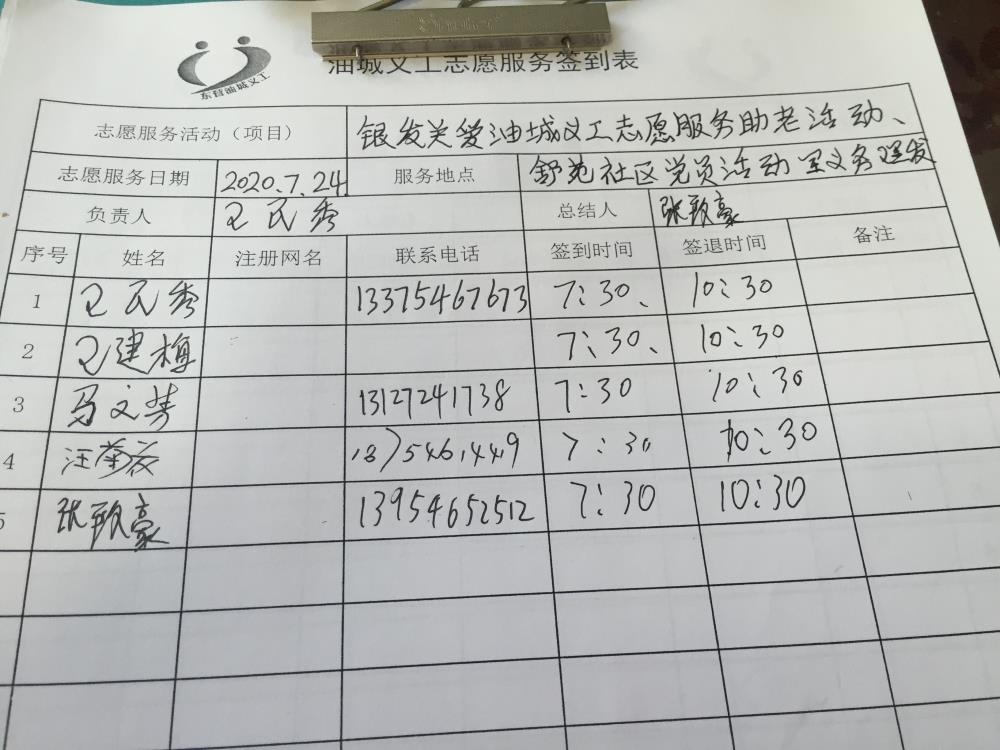 东营油城义工
油城义工志愿服务签到表
志愿服务活动（项目） 银发关爱油城义工志愿服务助老活动、
志愿服务日期 2020.7.24 服务地点 舒苑社区党员活动室义务理发
负责人 王民秀 总结人 张致豪
序号 姓名 注册网名 联系电话 签到时间 签退时间 备注
1 王民秀 13375467673 7:30、 10:30
2 王建梅 7:30、 10:30
3 马文芳 13127241738 7:30 10:30
4 汪 7:30 10:30
5 张致豪 13954652512 7:30 10:30